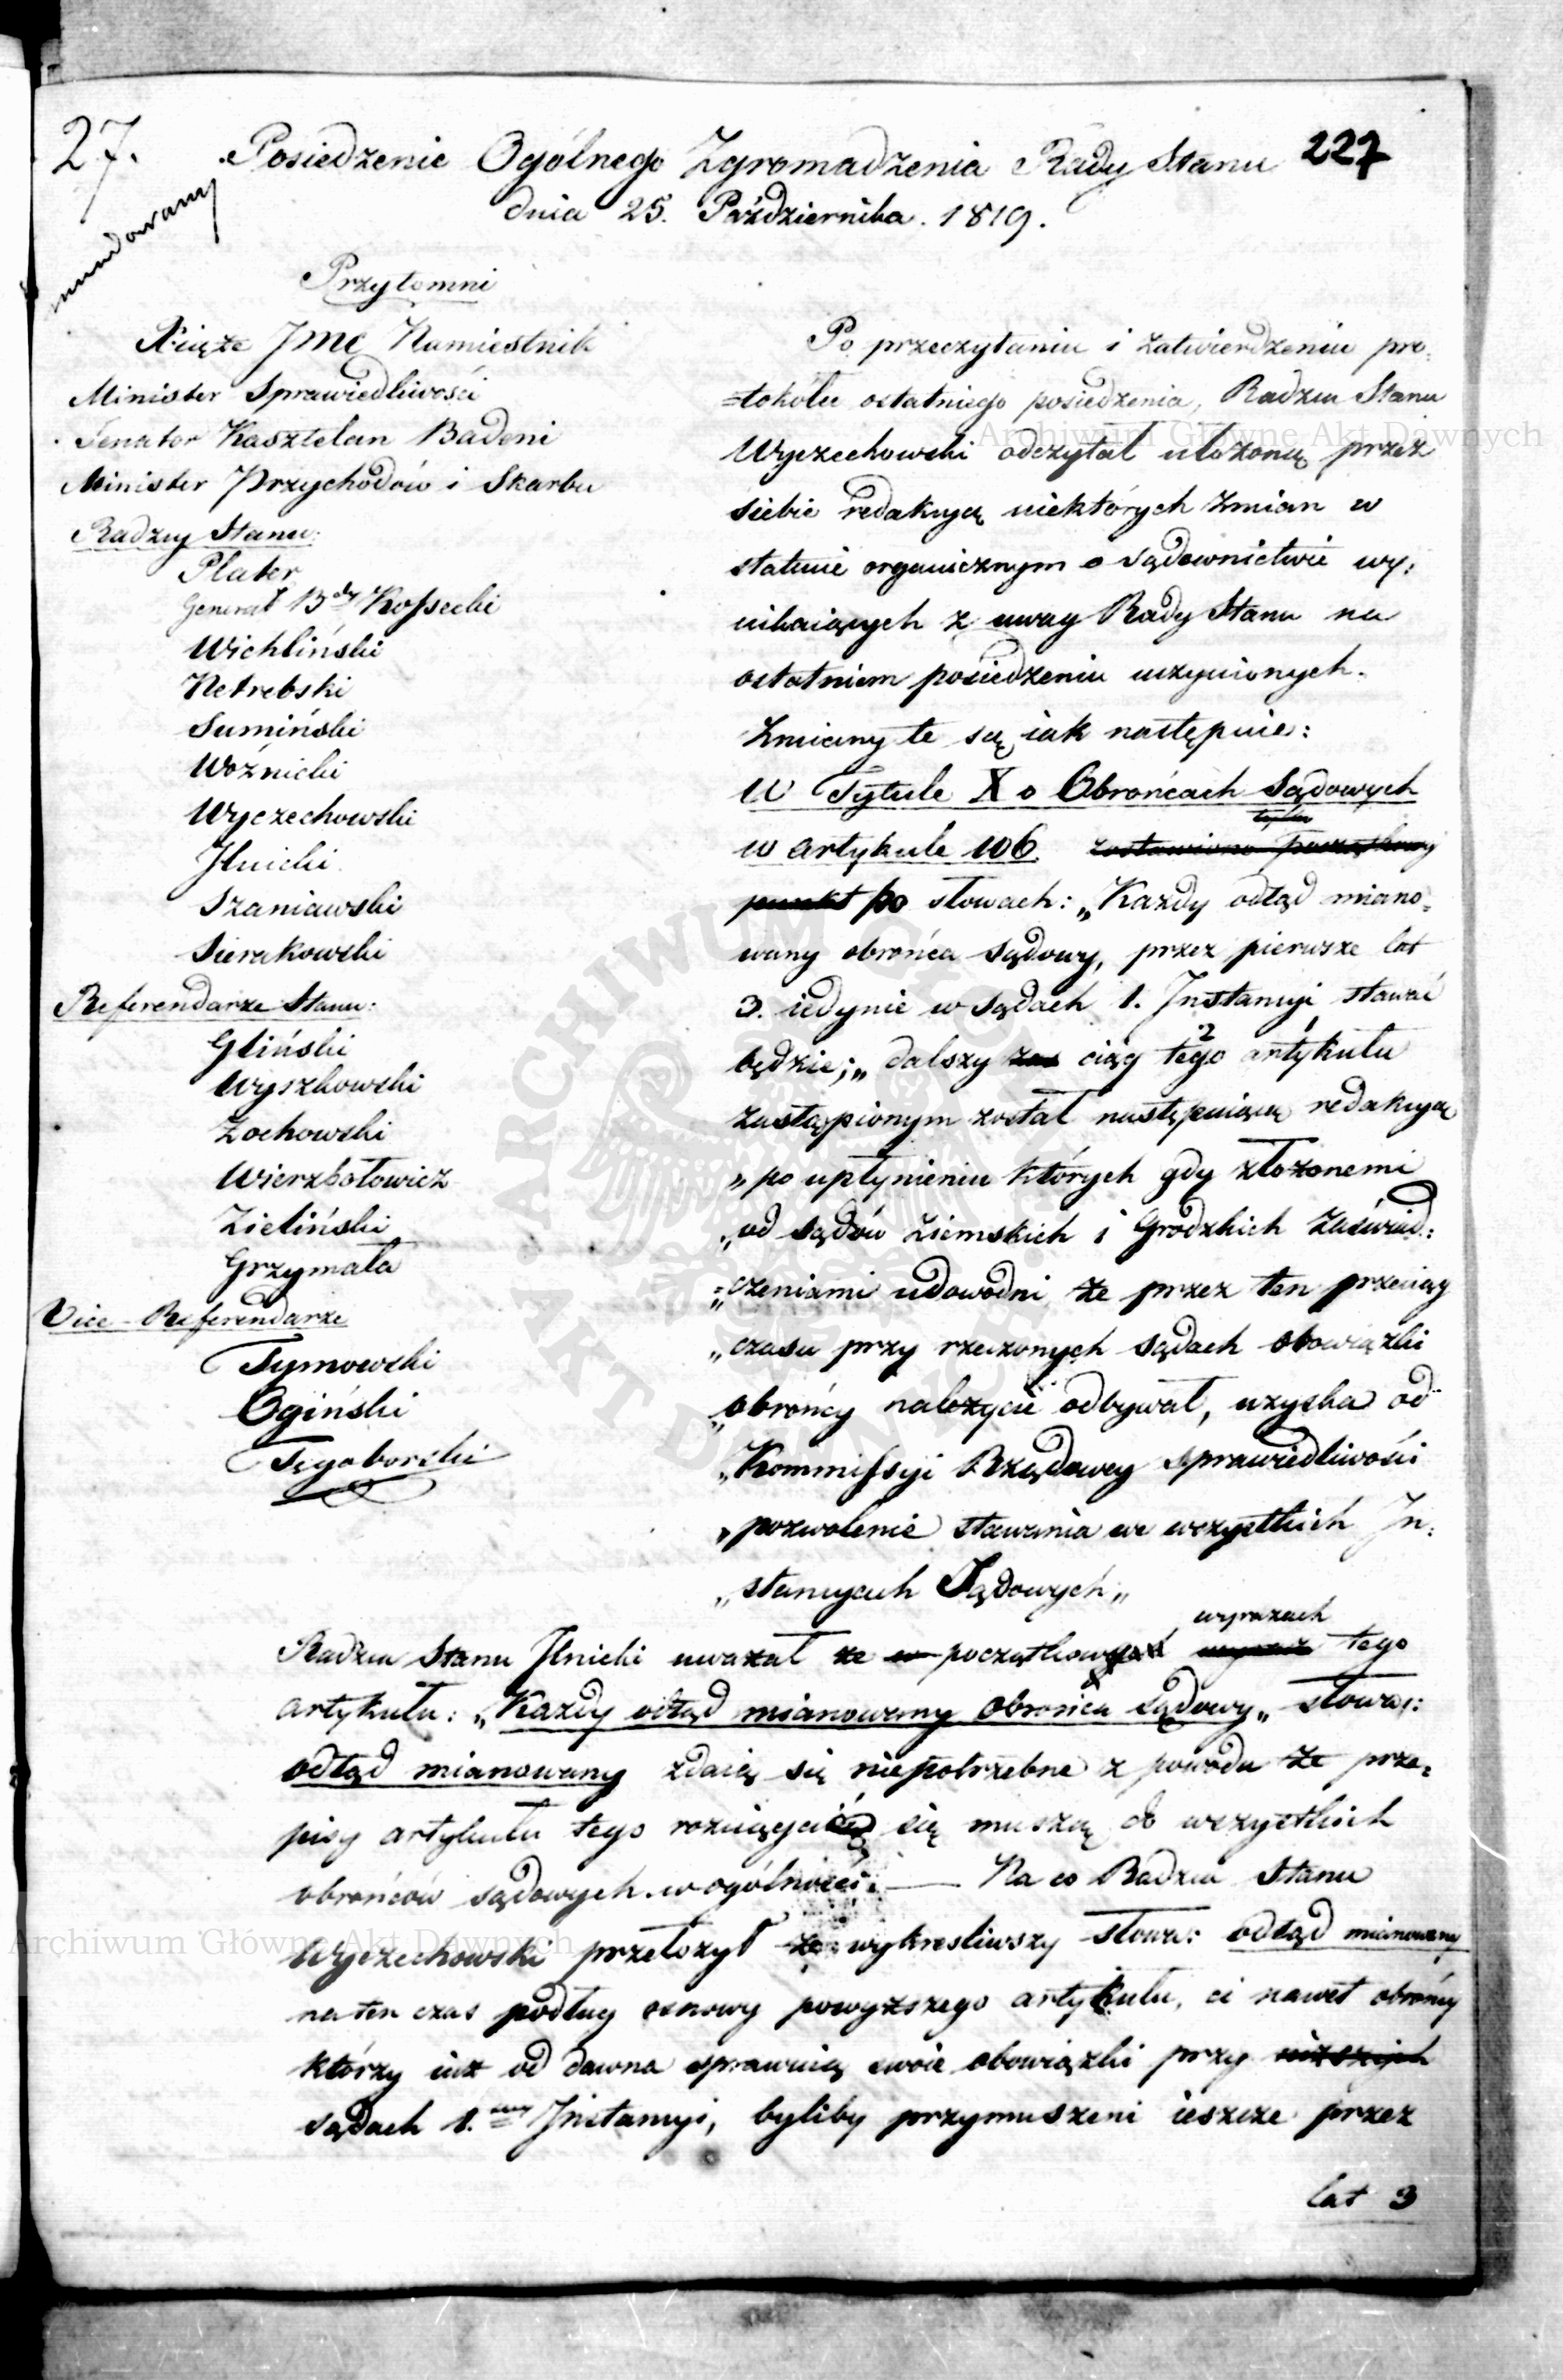 27.
Posiedzenie Ogólnego Zgromadzenia Rady Stanu 227
dnia 25. Października. 1819.
mundowany
Przytomni
Xiąże JMC Namiestnik
Minister Sprawiedliwości
Senator Kasztelan Badeni
Minister Przychodów i Skarbu
Radzcy Stanu:
Plater
Generał Bdy Kossecki
Wichliński
Netrebski
Sumiński
Woźnicki
Wyczechowski
Ilnicki
Szaniawski
Sierakowski
Referendarze Stanu:
Gliński
Wyszkowski
Żochowski
Wierzbołowicz
Zieliński
Grzymała
Vice-Referendarze
Tymowski
Ogiński
Tęgoborski
Po przeczytaniu i zatwierdzeniu pro=
=tokółu ostatniego posiedzenia, Radzca Stanu
Wyczechowski odczytał ułożoną przez
siebie redakcyą niektórych zmian w
statucie organicznym o sądownictwie wy=
nikaiących z uwag Rady Stanu na
ostatniem posiedzeniu uczynionych.
Zmiany te są iak następuie:
W Tytule X o Obrońcach Sądowych
tylko
w artykule 106. zostawiono początkowy
punkt po słowach: „Każdy odtąd miano=
wany obrońca sądowy, przez pierwsze lat
3. iedynie w sądach 1. Instancyi stawać
2 1
będzie;„ dalszy zas ciąg tego artykułu
zastąpionym został następuiącą redakcyą
„po upłynieniu których gdy złożonemi
„od sądów Ziemskich i Grodzkich zaświad=
„czeniami udowodni że przez ten przeciąg
„czasu przy rzeczonych sądach obowiązki
„obrońcy należycie odbywał, uzyska od
„Kommissyi Rządowey sprawiedliwości
„pozwolenie stawania we wszystkich In=
„stancyach Sądowych„
wyrazach
Radzca Stanu Ilnicki uważał że w początkowych tego
artykułu: „Każdy odtąd mianowany Obrońca sądowy„ słowa:
odtąd mianowany zdaią się niepotrzebne z powodu że prze=
pisy artykułu tego rozciągać się muszą do wszystkich
obrońców sądowych w ogólności. — Na co Radzca Stanu
Wyczechowski przełożył że wykreśliwszy słowa: odtąd mianowany
na ten czas podług osnowy powyższego artykułu, ci nawet obrońcy
którzy iuż od dawna sprawuią swoie obowiązki przy niższych
sądach 1.szey Instancyi, byliby przymuszeni ieszcze przez
lat 3
Archiwum Główne Akt Dawnych
Archiwum Główne Akt Dawnych
ARCHIWUM GŁÓWNE AKT DAWNYCH